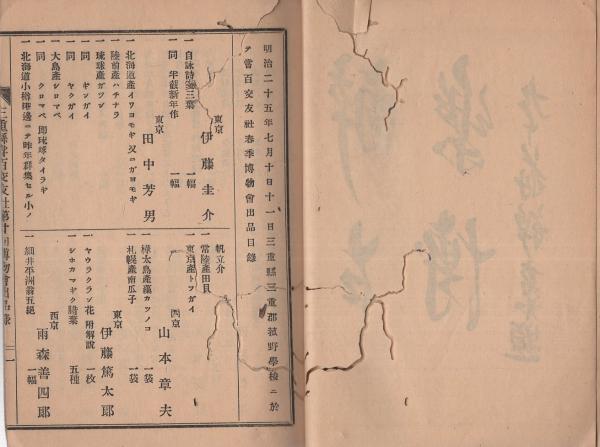 明治二十五年七月十日十一日三重縣三重郡菰野學校ニ於
テ當百交友社春季博物會出品目錄
東京　伊藤圭介
一自詠詩箋三葉　一幅
一同　半截新年作　一幅
東京　田中芳男
一北海道産イワヨモギ　又ニガヨモギ
一陸前産ハチナラ
一琉球産ガツン
一同　ギンガイ
一同　ヤクガイ
一大島産シロマベ
一同　クロマベ　即琉球タイラギ
一北海道小樽港邊ニテ昨年群集セル小ノ
帆立介
一常陸産田貝
一東京産トフガイ
西京　山本章夫
一樺太島産藻カツノコ　一袋
一札幌産南瓜子　一袋
東京　伊藤篤太郎
一ヤウラクラン花　附解説　一枚
一シホガマギク腊葉　五種
西京　雨森善四郎
一細井平洲翁五絕　一幅
三重縣當百交友社第廿回博物會出品錄
二